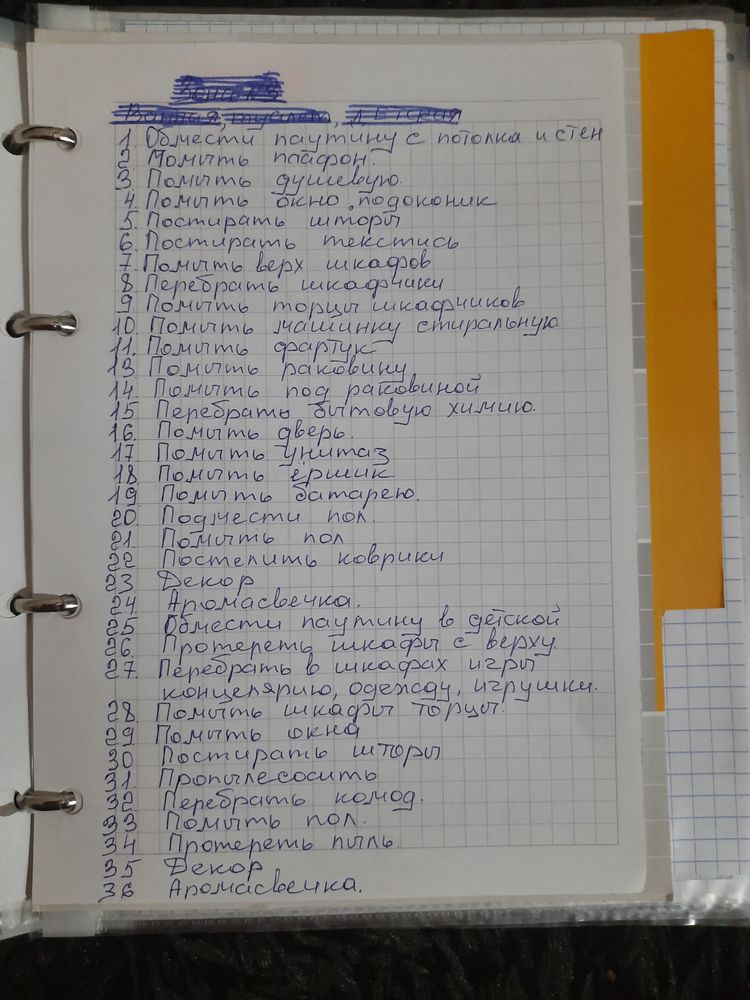 Зона №3
Ванная, туалет, детская
1. Обмести паутину с потолка и стен
2. Помыть плафон.
3. Помыть душевую.
4. Помыть окно, подоконик
5. Постирать шторы
6. Постирать текстись
7. Помыть верх шкафов
8. Перебрать шкафчики
9. Помыть торцы шкафчиков
10. Помыть машинку стиральную
11. Помыть фартук
13. Помыть раковину
14. Помыть под раковиной
15. Перебрать бытовую химию.
16. Помыть дверь.
17. Помыть унитаз
18. Помыть ёршик
19. Помыть батарею.
20. Подмести пол.
21. Помыть пол
22 Постелить коврики
23 Декор
24. Аромасвечка.
25 Обмести паутину в детской
26. Протереть шкафы с верху.
27. Перебрать в шкафах игры
концелярию, одежду, игрушки.
28. Помыть шкафы торцы.
29 Помыть окна
30 Постирать шторы
31 Пропылесосить
32 Перебрать комод.
33 Помыть пол.
34 Протереть пыль.
35 Декор
36 Аромасвечка.